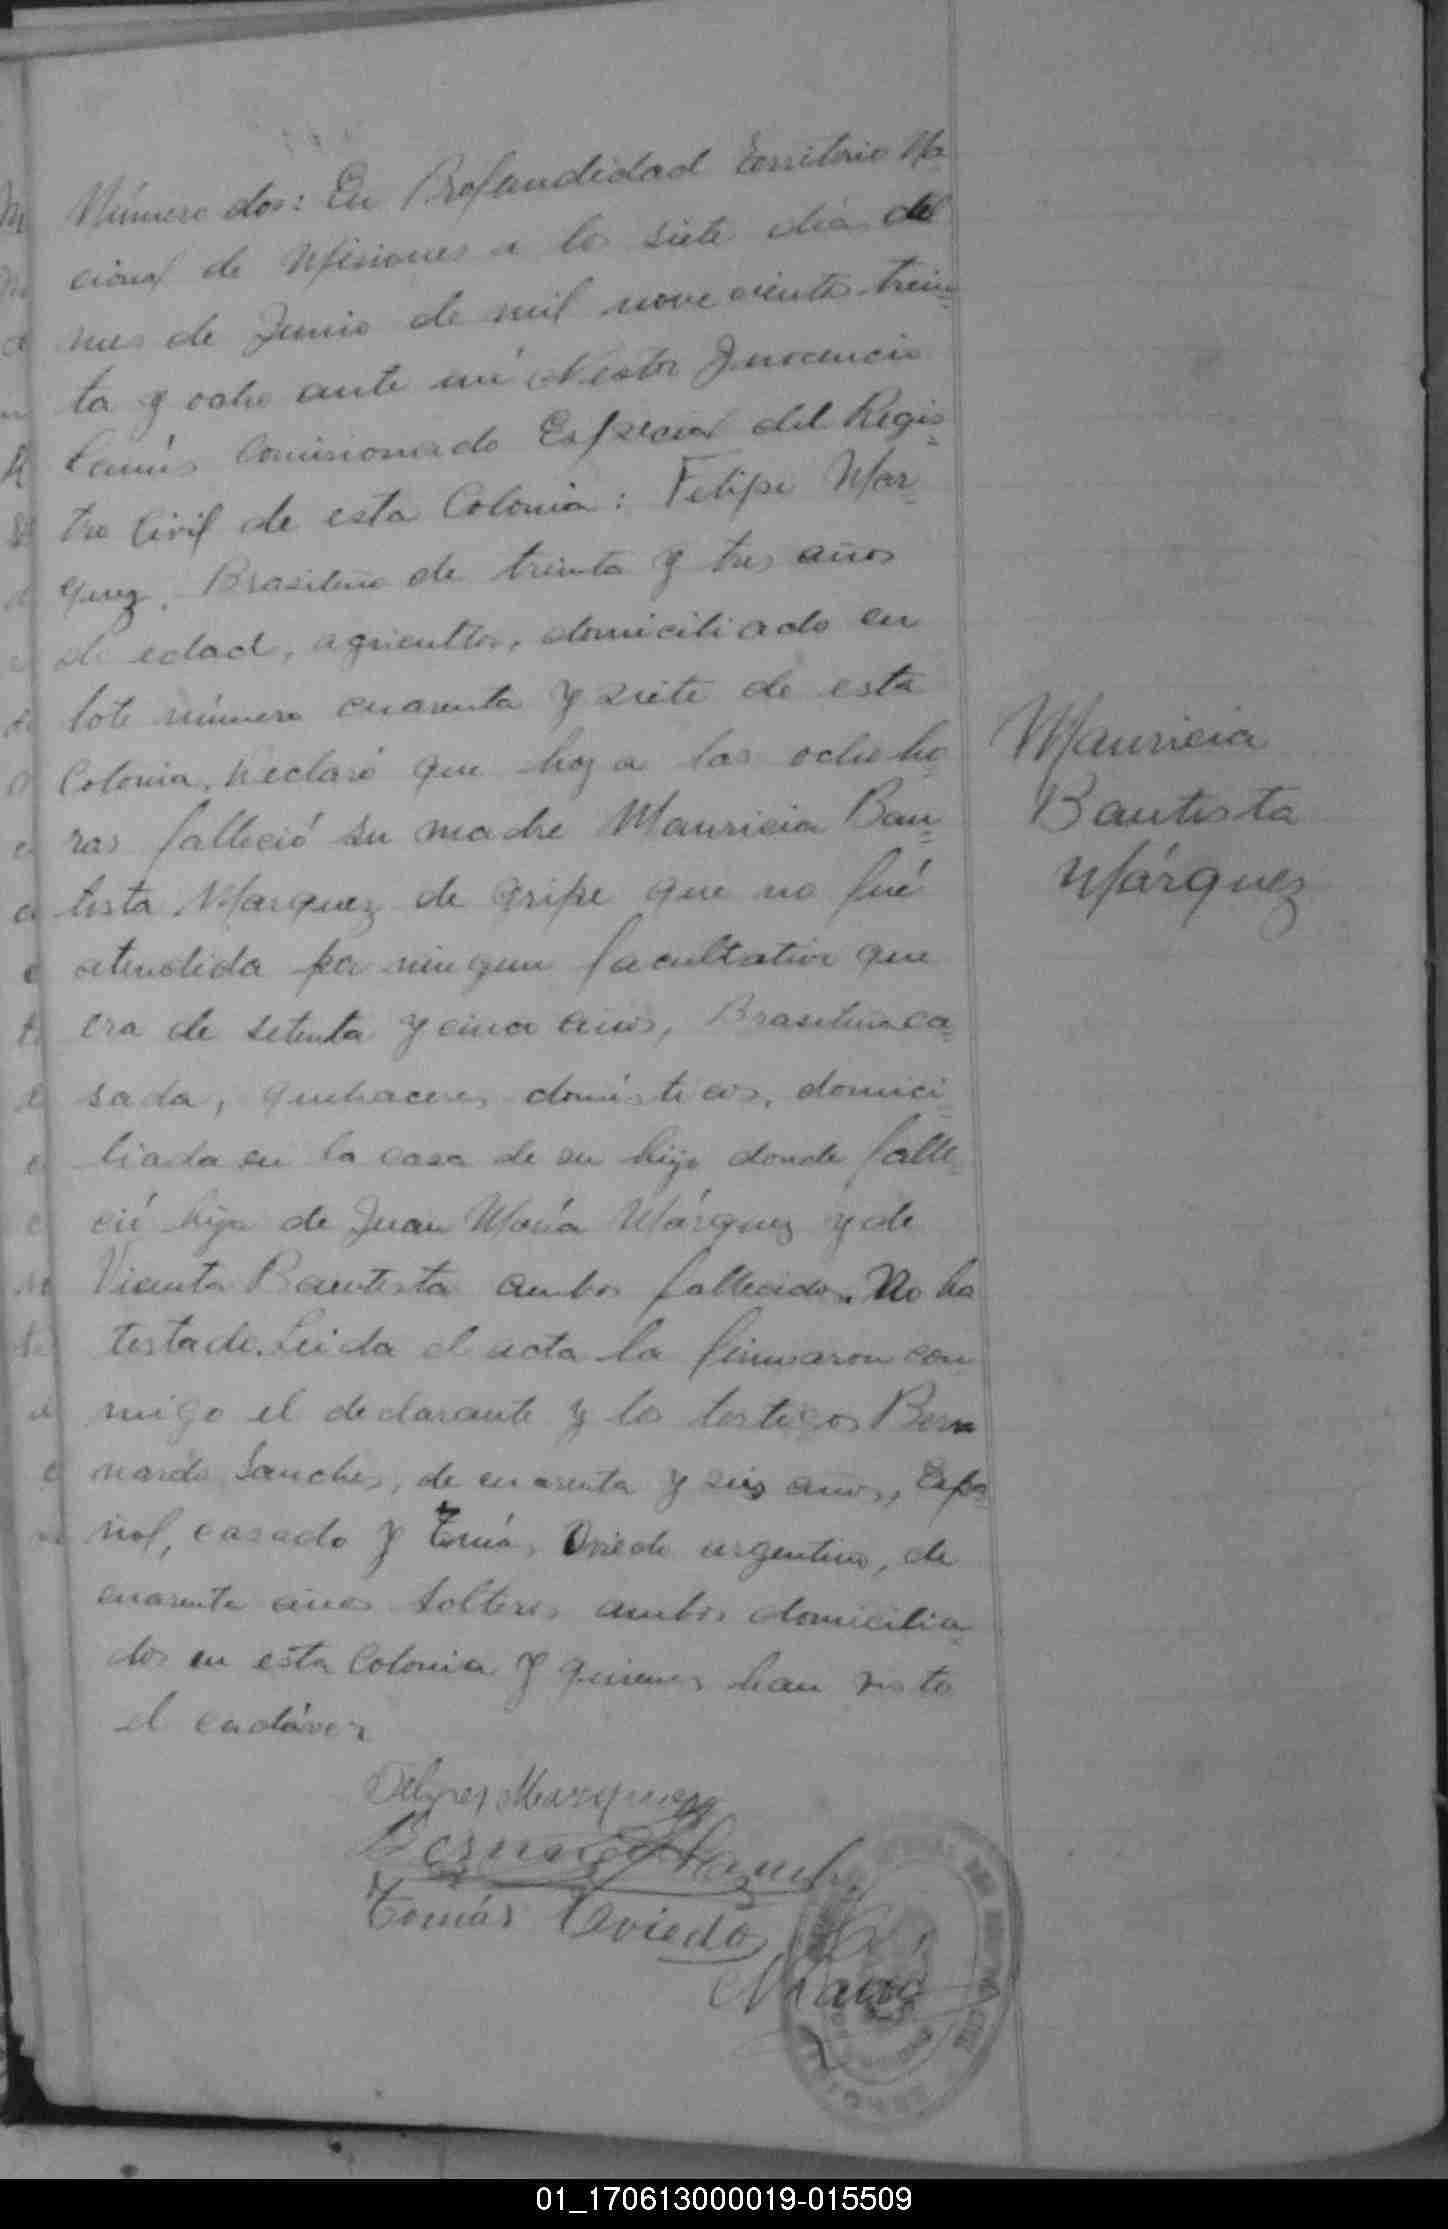 Número dos: En Profundidad Territorio Na-
cional de Misiones a los siete dias del
mes de Junio de mil novecientos trein-
ta y ocho ante mi Nestor Inocencio
Lanús Comisionado Especial del Regis-
tro Civil de esta Colonia: Felipe Mar-
quez, Brasileño de treinta y tres años
de edad, agricultor, domiciliado en
lote número cuarenta y siete de esta
Colonia. Declaró que hoy a las ocho ho-
ras falleció su madre Mauricia Bau-
tista Marquez de gripe que no fué
atendida por ningun facultativo que
era de setenta y cinco años, Brasileña ca-
sada, quehaceres domésticos, domici-
liada en la casa de su hijo donde falle-
ció hija de Juan María Márquez y de
Vicenta Bautista ambos fallecidos. No ha
testado. Leida el acta la firmaron con
migo el declarante y los testigos Ber
nardo Sanches, de cuarenta y seis años, Espa-
ñol, casado y Tomás Oviedo argentino, de
cuarenta años solteros ambos domicilia-
dos en esta Colonia y quienes han visto
el cadáver
Mauricia
Bautista
Márquez
Marquez
Bernardo Sanch
Tomás Oviedo
01_170613000019-015509